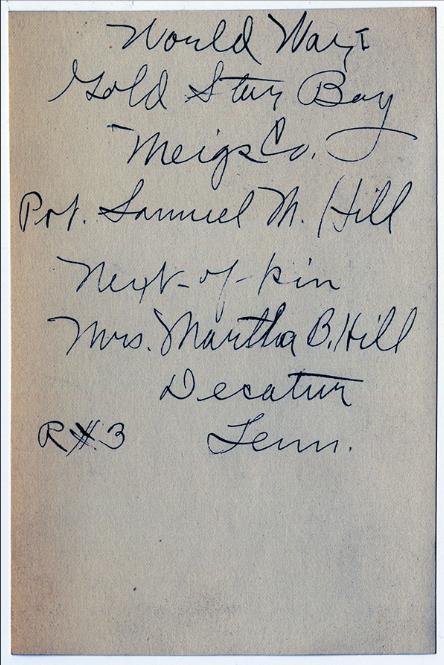 World War I
Gold Star Boy
Meigs Co.
Pvt. Samuel M. Hill
Next-of-kin
Mrs. Martha B. Hill
Decatur
R#3 Tenn.